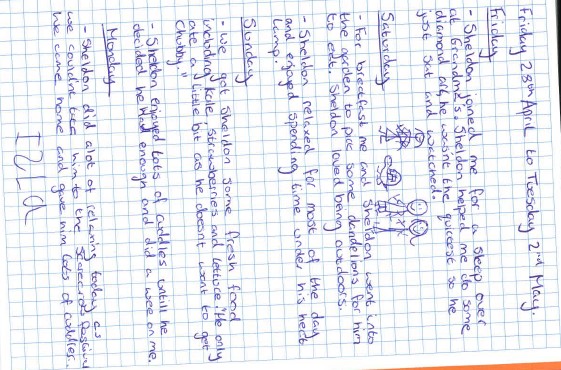 Friday 28th April to Tuesday 2nd May.
Friday
- Sheldon joined me for a sleep over
at Grandma's. Sheldon helped me do some
diamond art, he wasnt the quickest so he
just sat and watched.
Saturday
- For breakfast me and Sheldon went into
the garden to pick some dandelions for him
to eat. Sheldon loved being outdoors.
- Sheldon relaxed for most of the day
and enjoyed spending time under his heat
lamp.
Sunday
- We got Sheldon some fresh food
including kale, strawberries and lettuce. He only
ate a little bit as he doesnt want to get
"Chubby"
- Sheldon enjoyed lots of cuddles untill he
decided he had enough and did a wee on me.
Monday
- Sheldon did alot of relaxing today as
we couldnt take him to the scarecrow festival
we came home and gave him lots of cuddles.